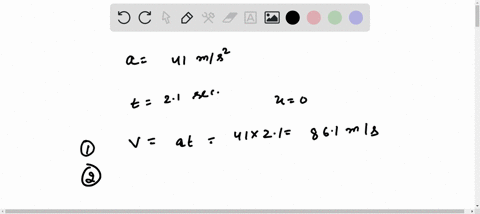 a = 41 m/s²
t = 2.1 sec. u = 0
① V = at = 41 × 2.1 = 86.1 m/s
②